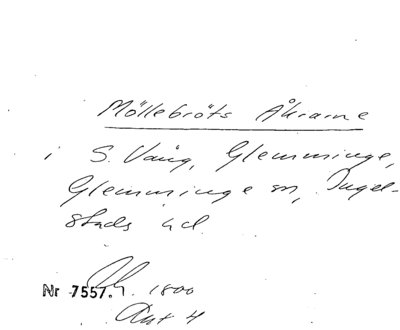 Möllebröts Åkrarne
i S. Vång, Glemminge,
Glemminge sn, Ingel-
stads hd.
Nr 7557. 1800
Akt 4